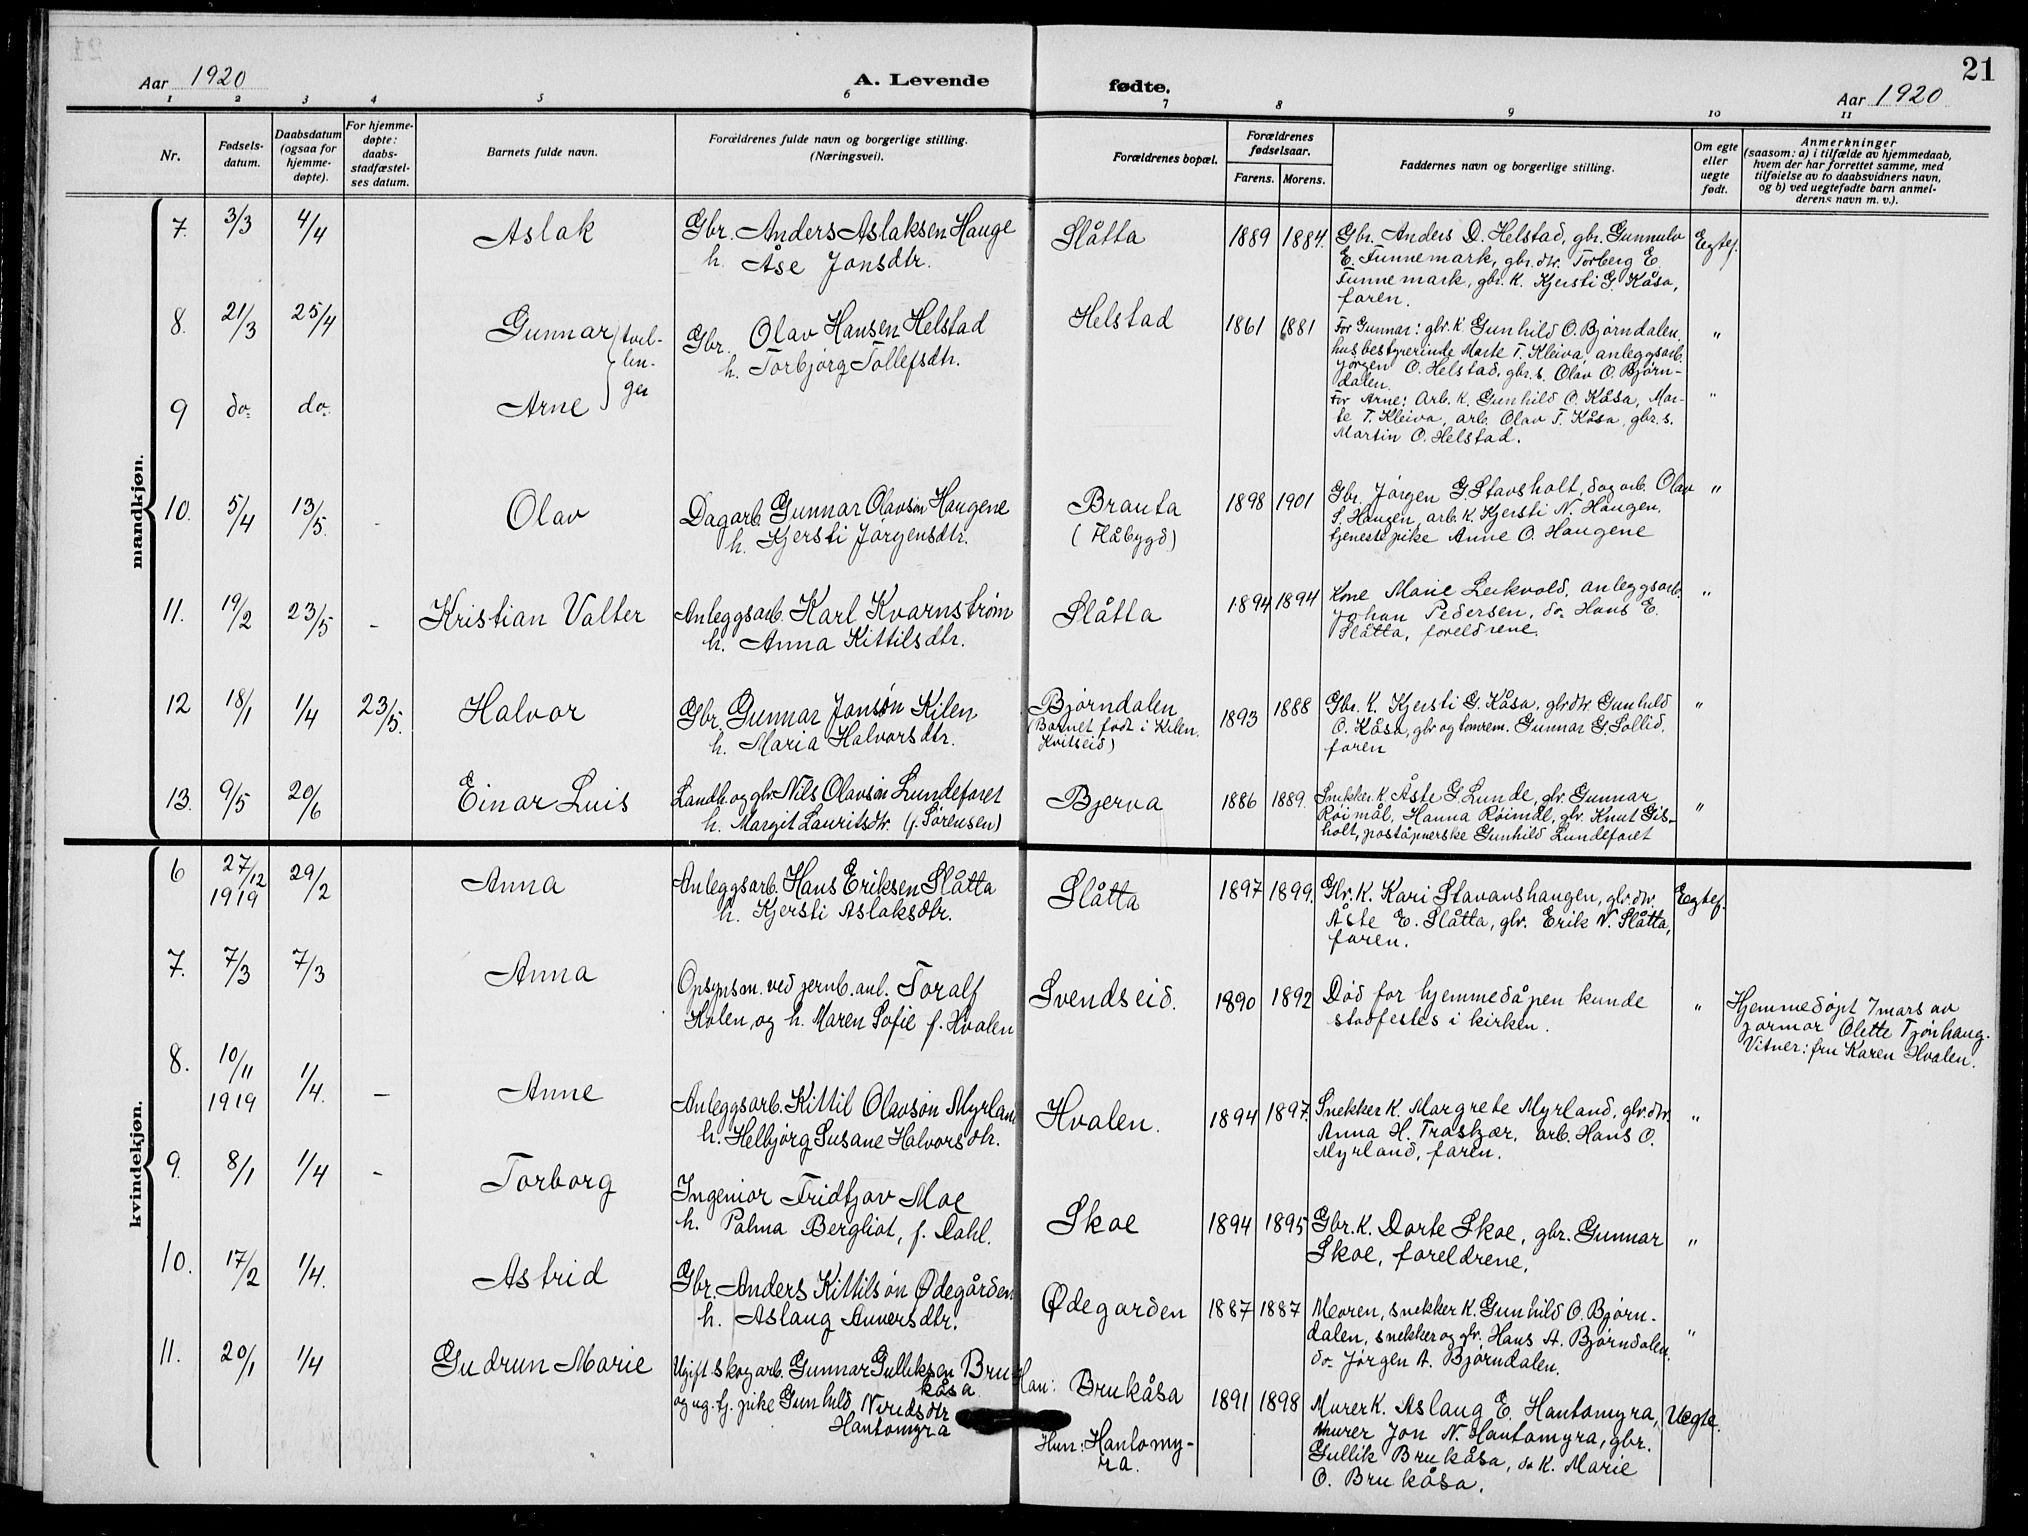 21
Aar 1920
A. Levende
fødte.
Aar 1920
1 2 3 4 5 6 7 8 9 10 11
Nr.
Fødsels-
datum.
Daabsdatum
(ogsaa for
hjemme-
døpte).
For hjemme-
døpte:
daabs-
stadfæstel-
ses datum.
Barnets fulde navn.
Forældrenes fulde navn og borgerlige stilling.
(Næringsvei).
Forældrenes bopæl.
Forældrenes
fødselsaar.
Farens. Morens.
Faddernes navn og borgerlige stilling.
Om egte
eller
uegte
født.
Anmerkninger
(saasom: a) i tilfælde av hjemmedaab,
hvem der har forrettet samme, med
tilføielse av to daabsvidners navn,
og b) ved uegtefødte barn anmel-
derens navn m. v.).
mandkjøn.
7. 3/3 4/4 Aslak
Gbr. Anders Aslaksen Hauge
h. Åse Jonsdtr.
Slåtta 1889 1884.
Gbr. Anders D. Helstad, gbr. Gunnulv
E. Funnemark, gbr. dtr. Torberg E.
Funnemark, gbr. K. Kjersti G. Kåsa,
faren.
Egtef.
8. 21/3 25/4 Gunnar
tvil-
lin-
ger
Gbr. Olav Hansen Helstad
h. Torbjørg Tollefsdtr.
Helstad 1861 1881
For Gunnar: gbr. K Gunhild O. Bjørndalen,
husbestyrerinde Marte T. Kleiva, anleggsarb.
Jørgen O. Helstad, gbr. s. Olav O. Bjørn-
dalen.
"
9 do. do. Arne
For Arne: Arb. K. Gunhild O. Kåsa, Mar-
te T. Kleiva, arb. Olav T. Kåsa, gbr. s.
Martin O. Helstad.
"
10. 5/4 13/5. - Olav
Dagarb. Gunnar Olavsøn Haugene
h. Kjersti Jørgensdtr.
Brauta
(Flåbygd)
1898 1901
Gbr. Jørgen G. Stavsholt, dag arb. Olav
S. Haugen, arb. K. Kjersti N. Haugen,
tjenestepike Anne O. Haugene
"
11. 19/2 23/5 - Kristian Valter
Anleggsarb. Karl Kvarnstrøm
h. Anna Kittilsdtr.
Slåtta 1894 1894
Kone Marie Leikvold, anleggsarb.
Johan Pedersen, do. Hans E.
Slåtta, foreldrene.
"
12 18/1 1/4 23/5. Halvor
Gbr. Gunnar Jonsøn Kilen
h. Maria Halvorsdtr.
Bjørndalen
(Barnet født i Kilen,
Kvitseid)
1893 1888
Gbr. K. Kjersti G. Kåsa, gbrdtr Gunhild
O. Kåsa, gbr og tømrem. Gunnar G. Sollid,
faren
"
13. 9/5 20/6 Einar Luis
Landh. og gbr. Nils Olavsøn Lundefaret
h. Margit Lauritsdtr. (f. Sørensen)
Bjerva 1886 1889.
Snekker K Åste G. Lunde, gbr. Gunnar
Røimål, Hanna Røimål, gbr. Knut Gis-
holt, poståpnerske Gunhild Lundefaret
"
kvindekjøn.
6 27/12 1919 29/2 Anna
Anleggsarb. Hans Eriksen Slåtta
h. Kjersti Aslaksdtr.
Slåtta 1897 1899.
Gbr. K. Kari Stavanshaugen, gbr. dtr.
Åste E. Slåtta, gbr. Erik N. Slåtta,
faren.
Egtef.
7. 7/3 7/3 Anna
Opsynsm. ved jernb. anl. Toralf
Hvalen og h. Maren Sofie f. Hvalen
Svendseid. 1890 1892
Død før hjemmedåpen kunde
stadfestes i kirken.
"
Hjemmedøpt 7 mars av
jormor Olette Tjønhaug.
Vitner: fru Karen Hvalen.
8. 10/11 1919 1/4. - Anne
Anleggsarb. Kittil Olavsøn Myrland
h. Helbjørg Susane Halvorsdtr.
Hvalen. 1894 1897.
Snekker K. Margrete Myrland, gbr. dtr.
Anna H. Traskjær, arb. Hans O.
Myrland, faren.
"
9. 8/1 1/4 - Torborg
Ingeniør Fridtjov Moe
h. Palma Bergliot, f. Dahl.
Skoe 1894 1895
Gbr. K. Dorte Skoe, gbr. Gunnar
Skoe, foreldrene.
"
10. 17/2 1/4. Astrid
Gbr. Anders Kittilsøn Ødegården
h. Aslaug Anversdtr.
Ødegarden 1887 1887
Moren, snekker K. Gunhild O. Bjørn-
dalen, snekker og gbr. Hans A. Bjørndalen,
do. Jørgen A. Bjørndalen.
"
11. 20/1 1/4 Gudrun Marie
Ugift skogarb. Gunnar Gulliksen Bru-
kåsa
og ug. tj. pike Gunhild Neridsdtr
Hantomyra
Han: Brukåsa
Hun: Hantomy-
ra.
1891 1898
Murer K. Aslaug E. Hantomyra,
murer Jon N. Hantomyra, gbr.
Gullik Brukåsa, do K. Marie
O. Brukåsa.
Uegte.